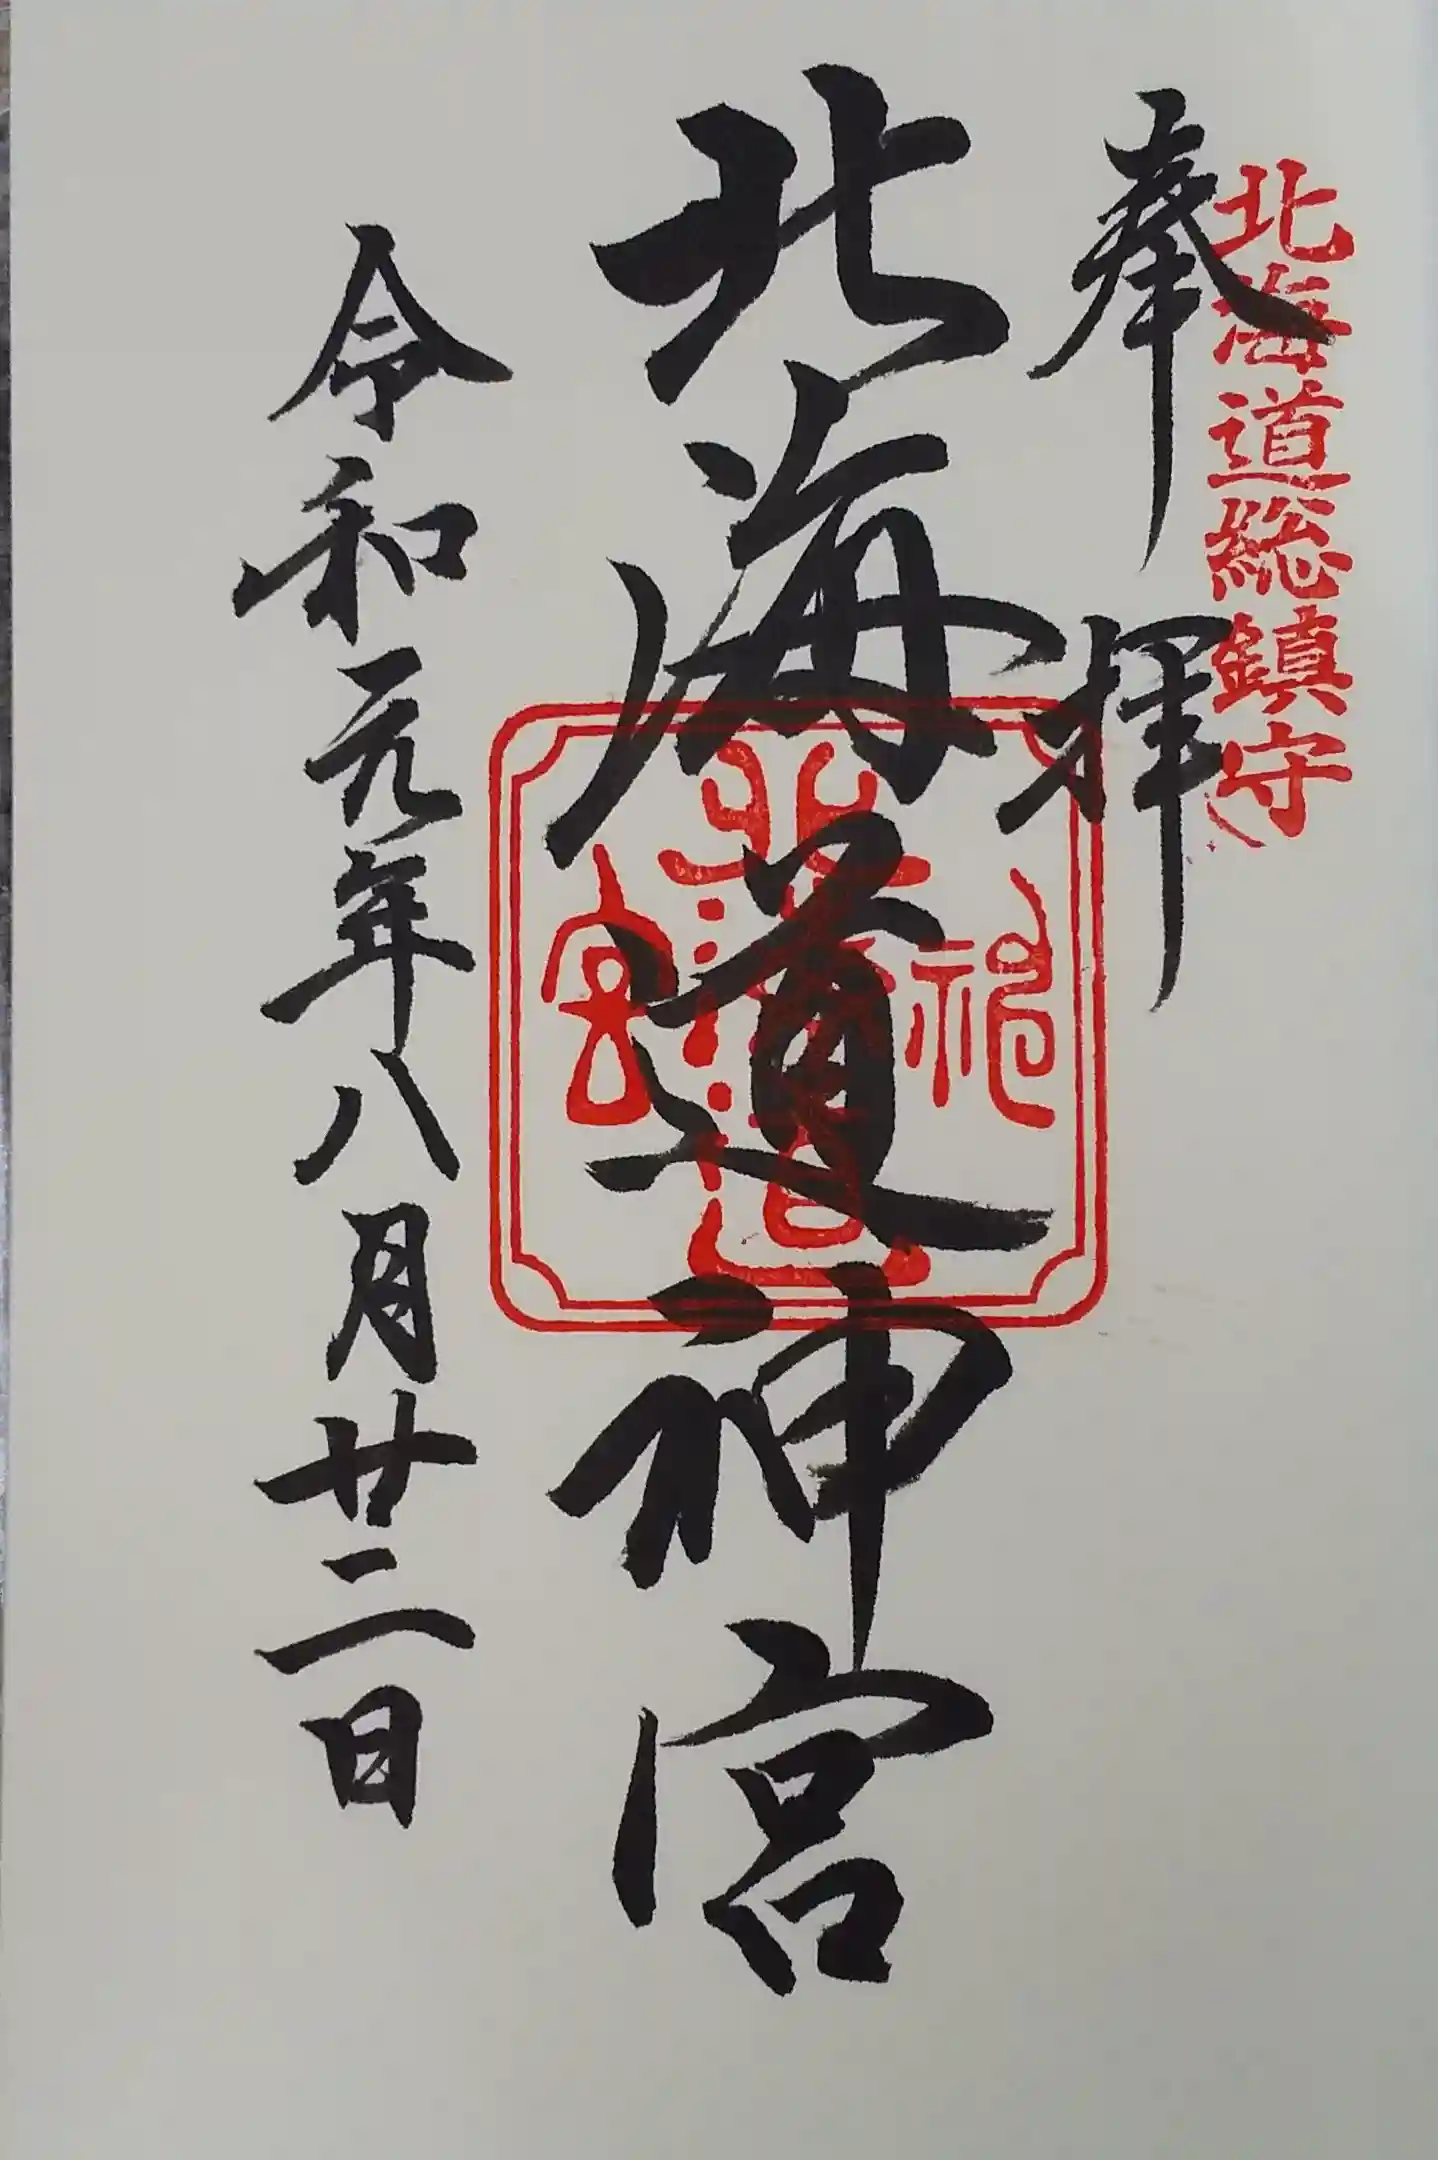 北海道総鎮守
奉拝
北海道神宮
北海道神宮
令和元年八月廿二日